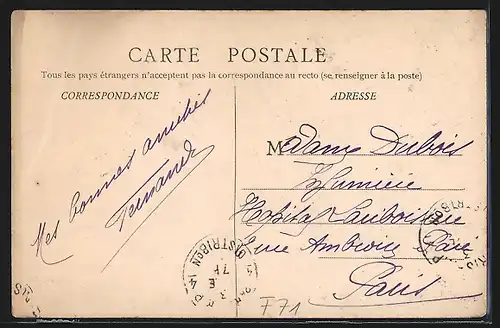 CARTE POSTALE
Tous les pays étrangers n'acceptent pas la correspondance au recto (se renseigner à la poste)
CORRESPONDANCE
ADRESSE
Mes bonnes amitiés
Fernand
Madame Dubois
Infirmière
Hopital Lariboisière
2 rue Ambroise Paré
Paris
DISTRIBON
F71